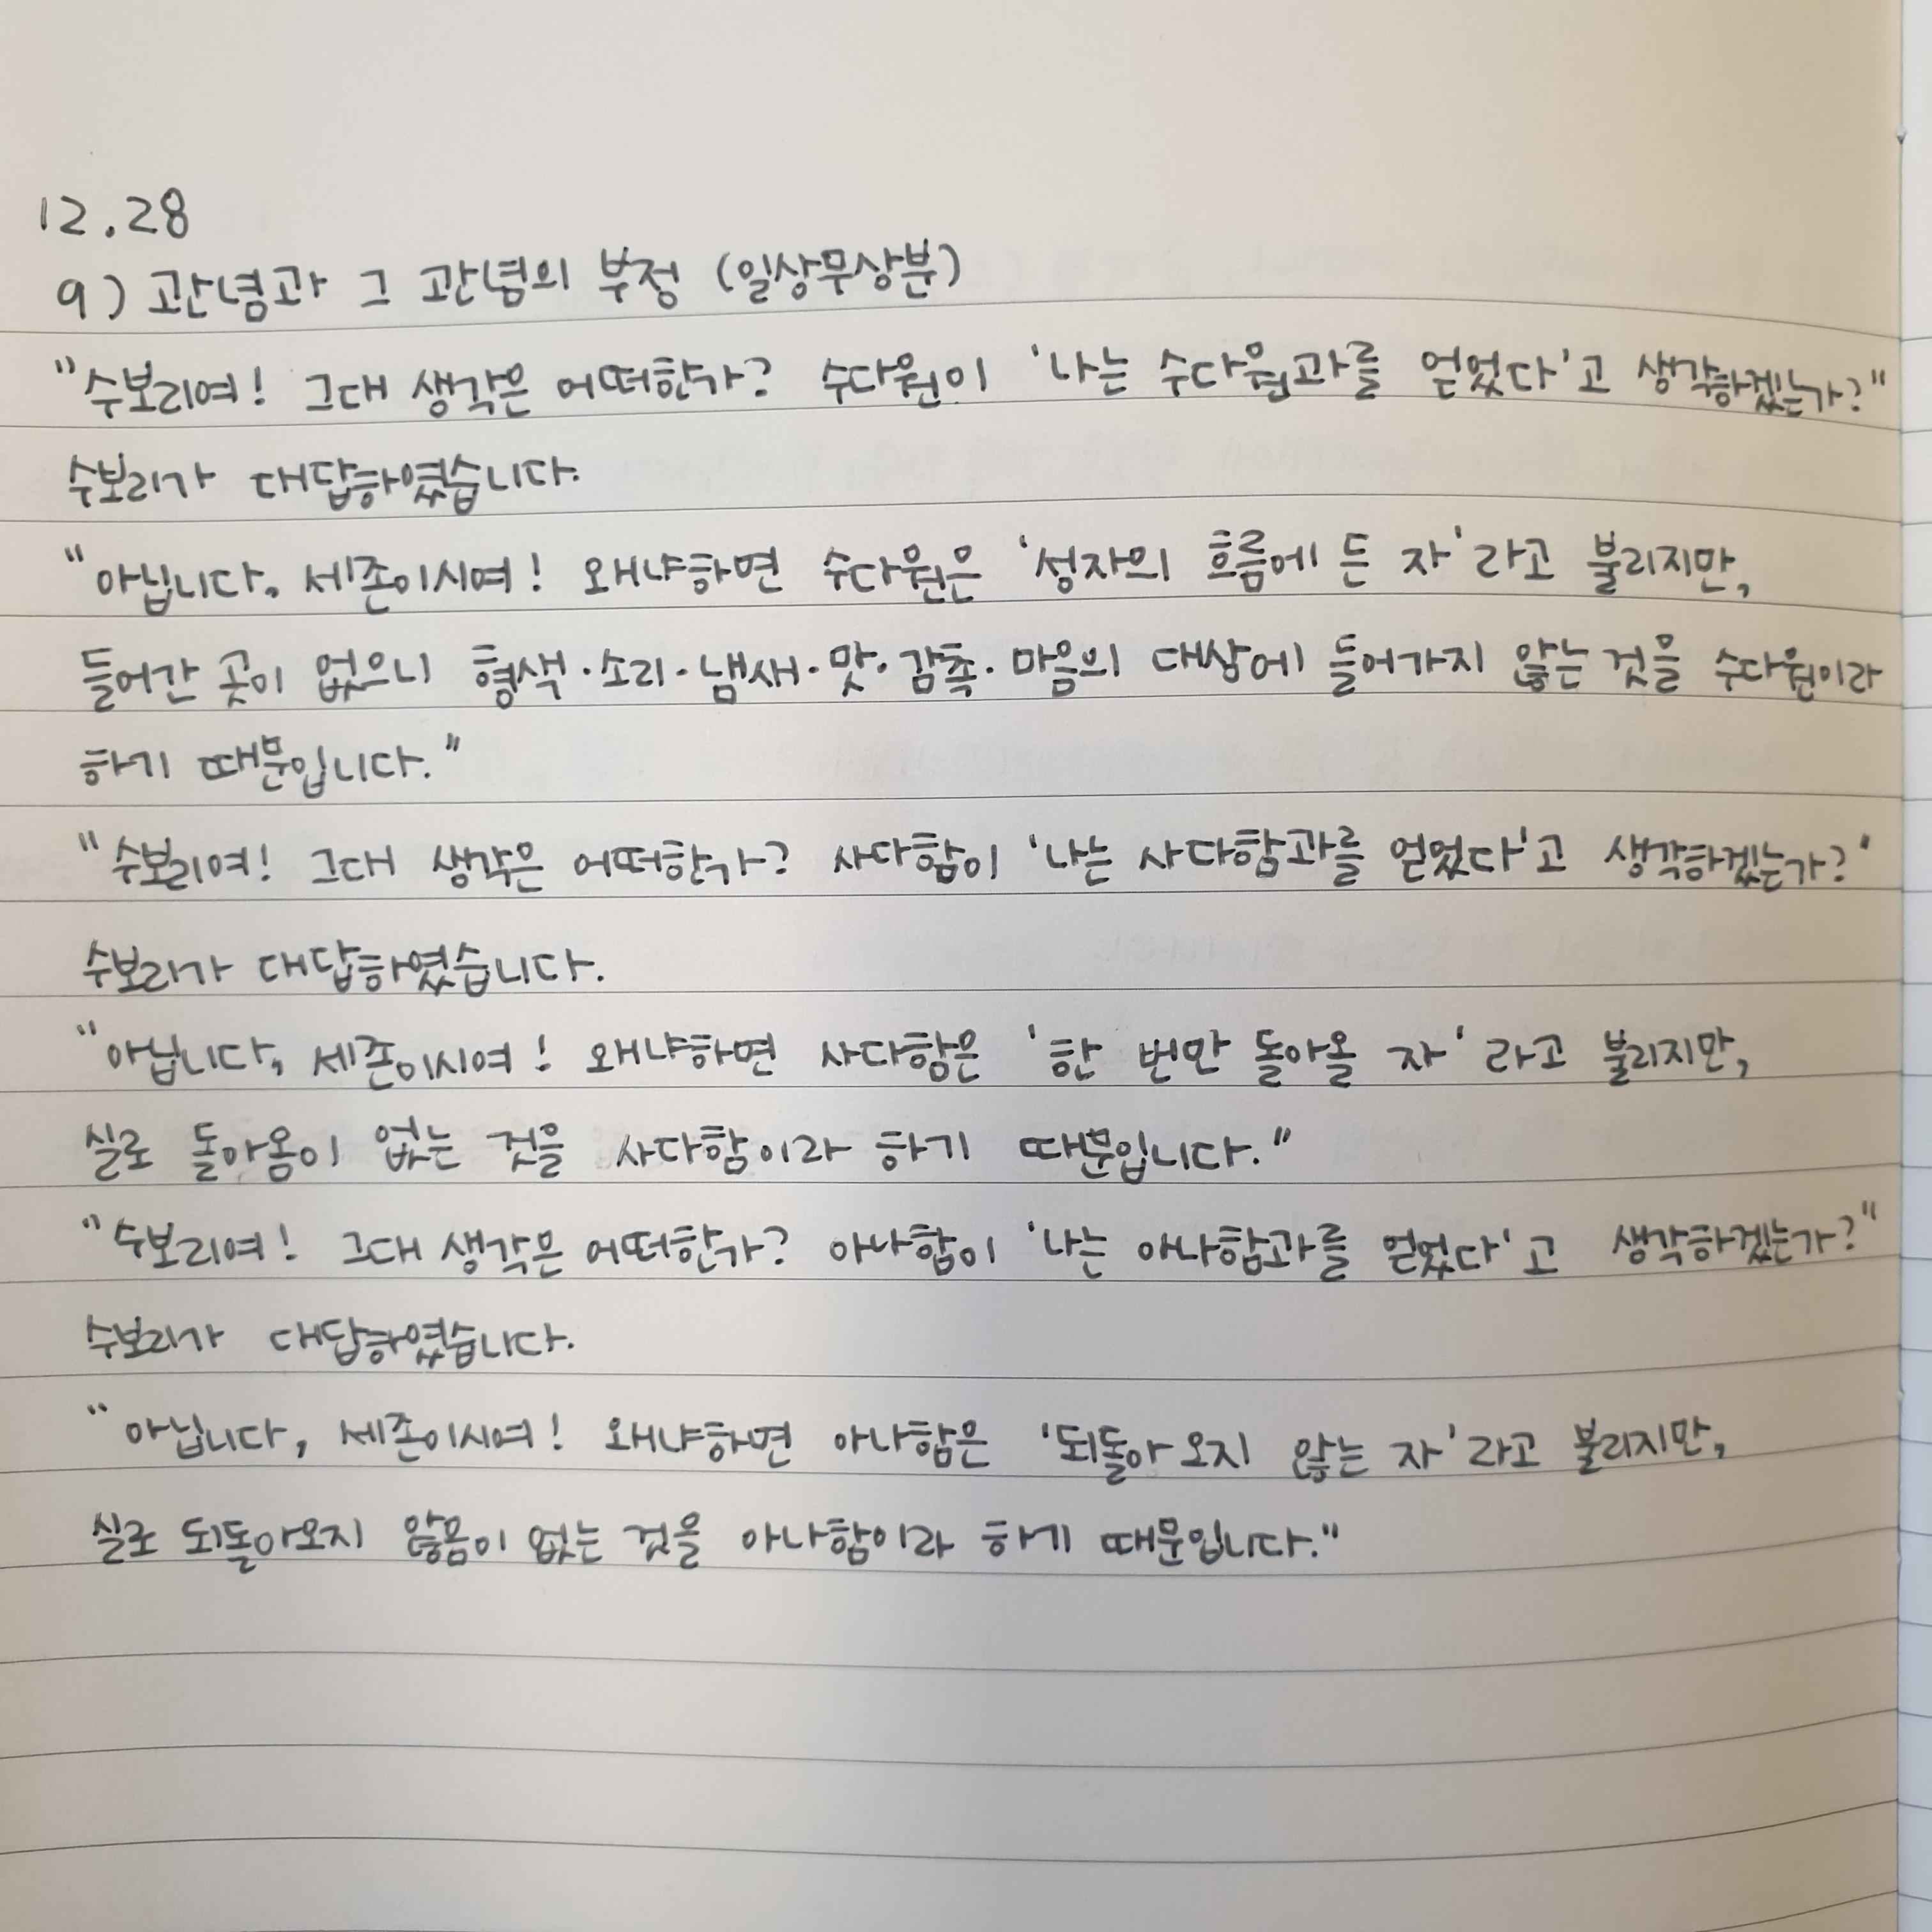 12.28
9) 관념과 그 관념의 부정 (일상무상분)
"수보리여! 그대 생각은 어떠한가? 수다원이 '나는 수다원과를 얻었다'고 생각하겠는가?"
수보리가 대답하였습니다.
"아닙니다. 세존이시여! 왜냐하면 수다원은 '성자의 흐름에 든 자'라고 불리지만,
들어간 곳이 없으니 형색·소리·냄새·맛·감촉·마음의 대상에 들어가지 않는 것을 수다원이라
하기 때문입니다."
"수보리여! 그대 생각은 어떠한가? 사다함이 '나는 사다함과를 얻었다'고 생각하겠는가?'
수보리가 대답하였습니다.
"아닙니다, 세존이시여! 왜냐하면 사다함은 '한 번만 돌아올 자' 라고 불리지만,
실로 돌아옴이 없는 것을 사다함이라 하기 때문입니다."
"수보리여! 그대 생각은 어떠한가? 아나함이 '나는 아나함과를 얻었다'고 생각하겠는가?"
수보리가 대답하였습니다.
"아닙니다, 세존이시여! 왜냐하면 아나함은 '되돌아 오지 않는 자'라고 불리지만,
실로 되돌아오지 않음이 없는 것을 아나함이라 하기 때문입니다."